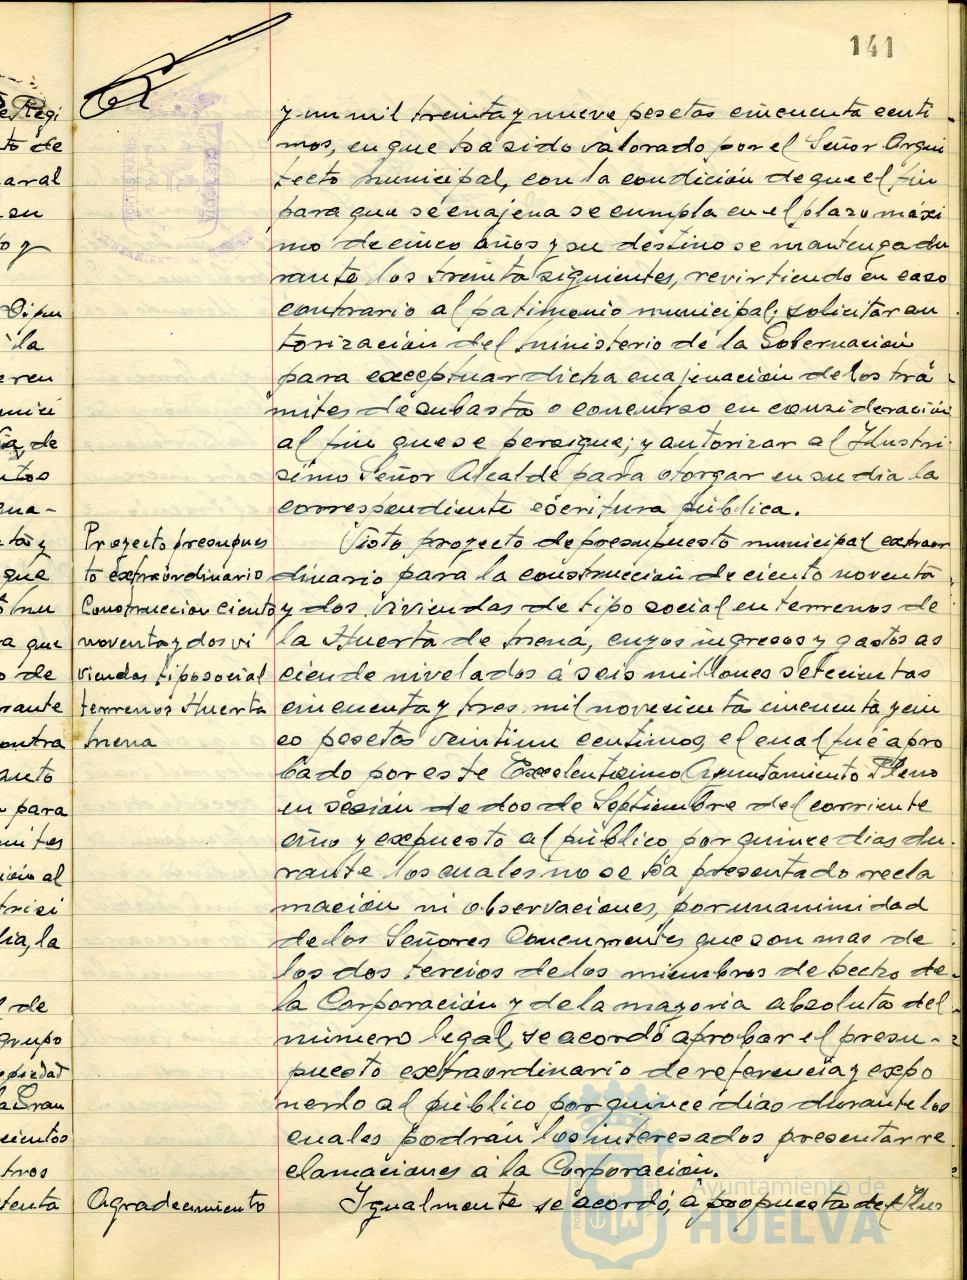 141
y un mil treinta y nueve pesetas cincuenta centi
mos, en que ha sido valorado por el Señor Arqui
tecto municipal, con la condición de que el fin
para que se enajena se cumpla en el plazo máxi
mo de cinco años y su destino se mantenga du
rante los treinta siguientes, revirtiendo en caso
contrario al patimonio municipal; solicitar au
torización del Ministerio de la Gobernación
para exceptuar dicha enajenación de los trá
mites de subasta o concurso en consideración
al fin que se persigue; y autorizar al Ilustri
simo Señor Alcalde para otorgar en su dia la
correspondiente escritura pública.
Proyecto presupues
to extraordinario
Construccion ciento
noventa y dos vi
viendas tipo social
terrenos Huerta
Mena
Visto proyecto de presupuesto municipal extraor
dinario para la construcción de ciento noventa
y dos viviendas de tipo social en terrenos de
la Huerta de Mena, cuyos ingresos y gastos as
ciende nivelados á seis millones setecientas
cincuenta y tres mil novecienta cincuenta y cin
co pesetas veintiun centimos, el cual fué apro
bado por este Excelentisimo Ayuntamiento Pleno
en sesión de dos de Septiembre del corriente
año y expuesto al público por quince dias du-
rante los cuales no se ha presentado recla
mación ni observaciones, por unanimidad
de los Señores Concurrentes que son mas de
los dos tercios de los miembros de hecho de
la Corporación y de la mayoria absoluta del
número legal, se acordó aprobar el presu-
puesto extraordinario de referencia y expo
nerlo al público por quince dias durante los
cuales podrán los interesados presentar re
clamaciones á la Corporación.
Agradecimiento
Igualmente se acordó, á propuesta del Ilus
Ayuntamiento de
HUELVA